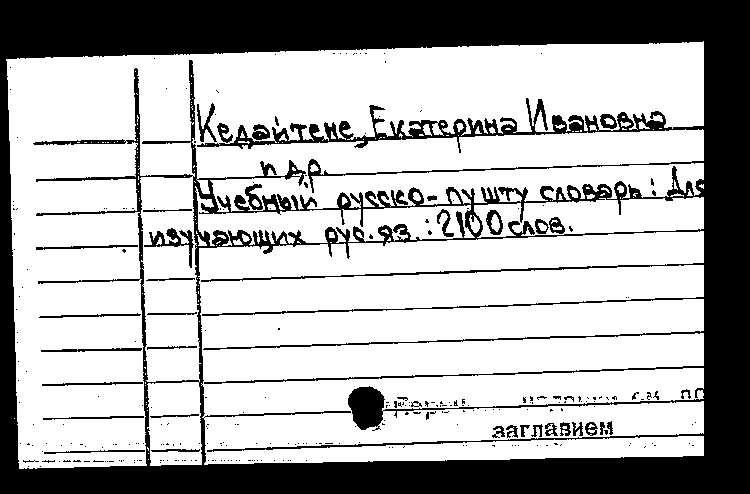 Кедайтене, Екатерина Ивановна
и др.
Учебный русско-пушту словарь: Для
изучающих рус. яз. : 2100 слов.
см. по
заглавием